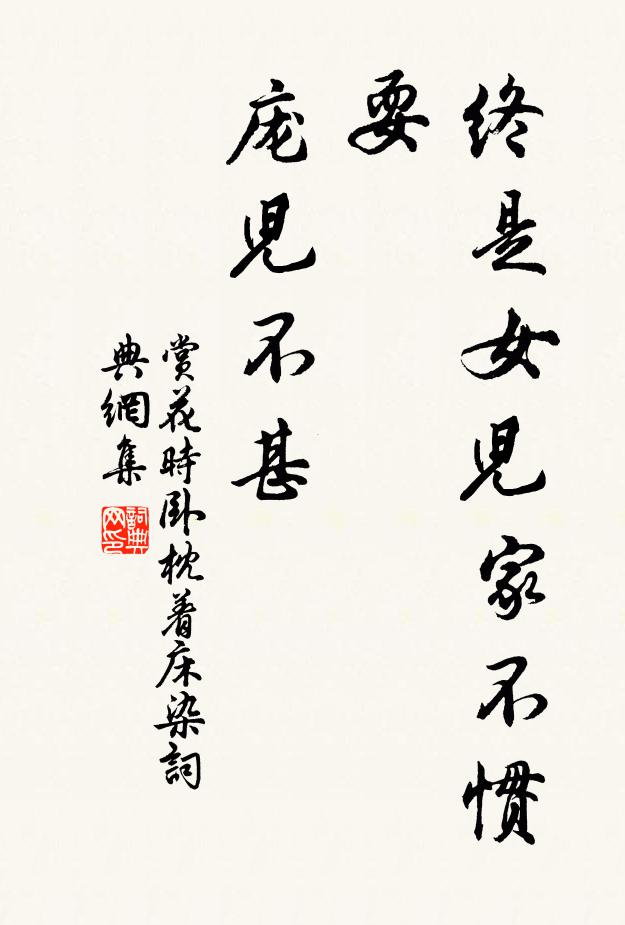 終是女兒家不慣
耍
庞兒不甚
賞花時卧枕着床染詞
典網集
詞典網印